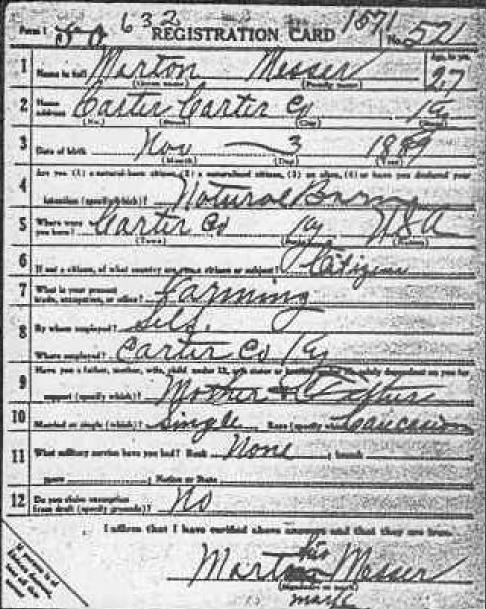 Form 1 632 REGISTRATION CARD 1571 No. 521
1 Name in full Marton Messer Age, in yrs. 27
(Given name) (Family name)
2 Home address Carter Carter Co Ky
(No.) (Street) (City) (State)
3 Date of birth Nov 3 1889
(Month) (Day) (Year)
Are you (1) a natural-born citizen, (2) a naturalized citizen, (3) an alien, (4) or have you declared your
4 intention (specify which)? Natural Born
5 Where were you born? Carter Co Ky USA
(Town) (State) (Nation)
6 If not a citizen, of what country are you a citizen or subject? Citizen
7 What is your present trade, occupation, or office? Farming
8 By whom employed? Self.
Where employed? Carter Co Ky
9 Have you a father, mother, wife, child under 12, or a sister or brother under 12, solely dependent on you for
support (specify which)? Mother
10 Married or single (which)? Single Race (specify which)? Caucasian
11 What military service have you had? Rank None ; branch
years ; Nation or State
12 Do you claim exemption from draft (specify grounds)? No
I affirm that I have verified above answers and that they are true.
his
Marton Messer
(Signature or mark)
mark